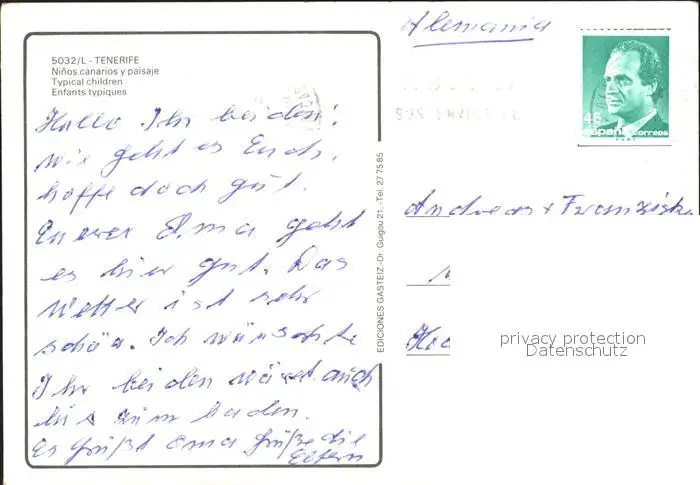 Alemania
5032/L - TENERIFE
Niños canarios y paisaje
Typical children
Enfants typiques
Hallo Ihr beiden!
wie geht es Euch,
hoffe doch gut.
Eurer Oma geht
es hier gut. Das
Wetter ist sehr
schön. Ich wünschte
Ihr beiden wäret auch
hier zum baden.
Es grüßt Oma grüße die
Eltern
EDICIONES GASTEIZ.-Dr. Guigou 21.-Tel. 277585
45
españa correos
Andreas + Franziska
privacy protection
Datenschutz